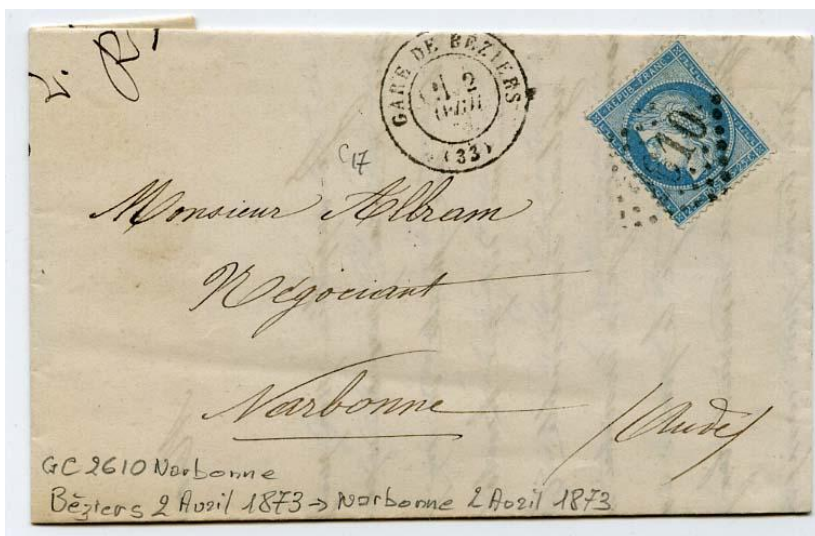 GARE DE BÉZIERS
2
(33)
RÉPUB. FRANC.
10
C17
Monsieur Allram
Négociant
Narbonne
(Aude)
GC 2610 Narbonne
Béziers 2 Avril 1873 → Narbonne 2 Avril 1873